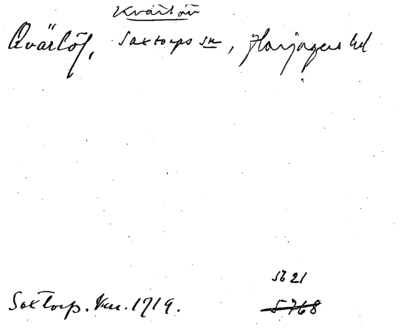 Kvärlöv
Qvärlöf, Saxtorps sn, Harjagers hd
5621
Saxtorp. Vm. 1719. 5768